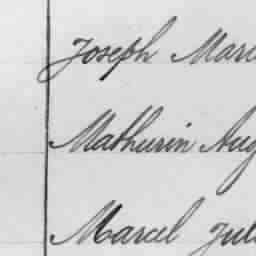 Joseph Mari
Mathurin Aug
Marcel Jul